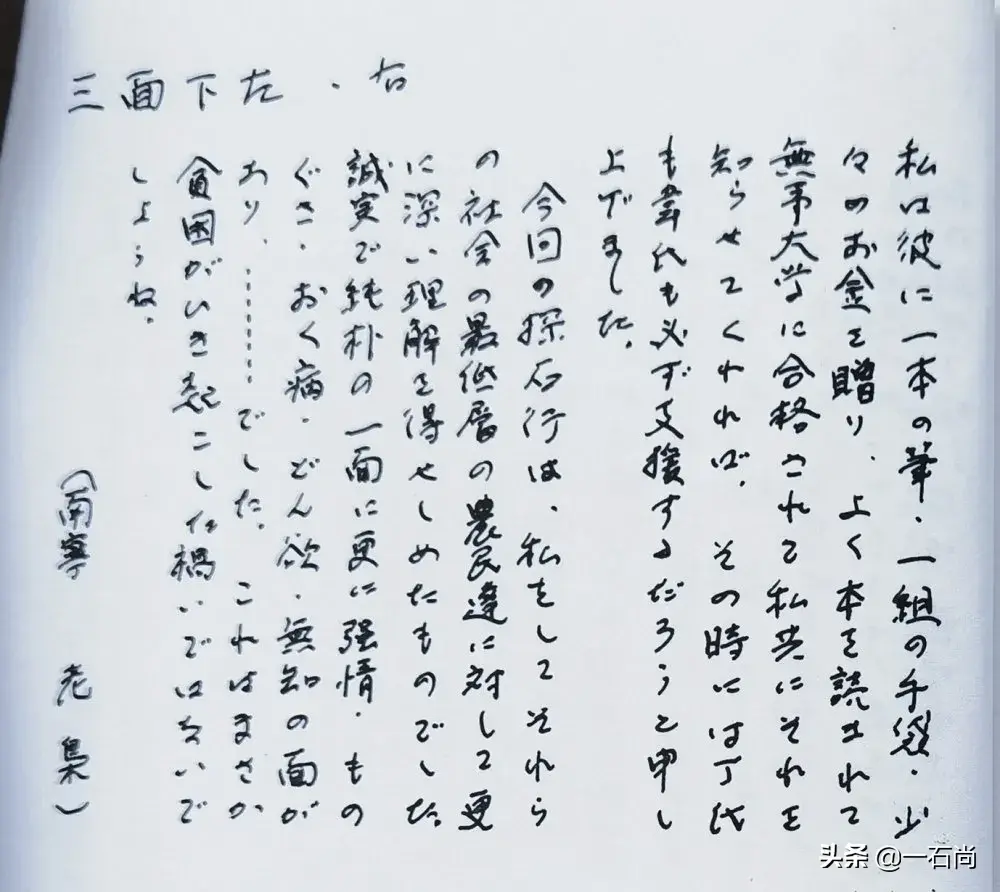 三面下左・右
私は彼に一本の筆・一組の手袋・少
々のお金を贈り、よく本を読まれて
無事大学に合格されて私共にそれを
知らせてくれれば、その時には丁氏
も韋氏も必ず支援するだろうと申し
上げました。
今回の探石行は、私をしてそれら
の社会の最低層の農民達に対して更
に深い理解を得せしめたものでした。
誠実で純朴の一面に更に强情・もの
ぐさ・おく病・どん欲・無知の面が
あり、………でした。これはまさか
貪困がひき起こした禍いではないで
しょうね。
(南寧 老梟)
头条 @一石尚